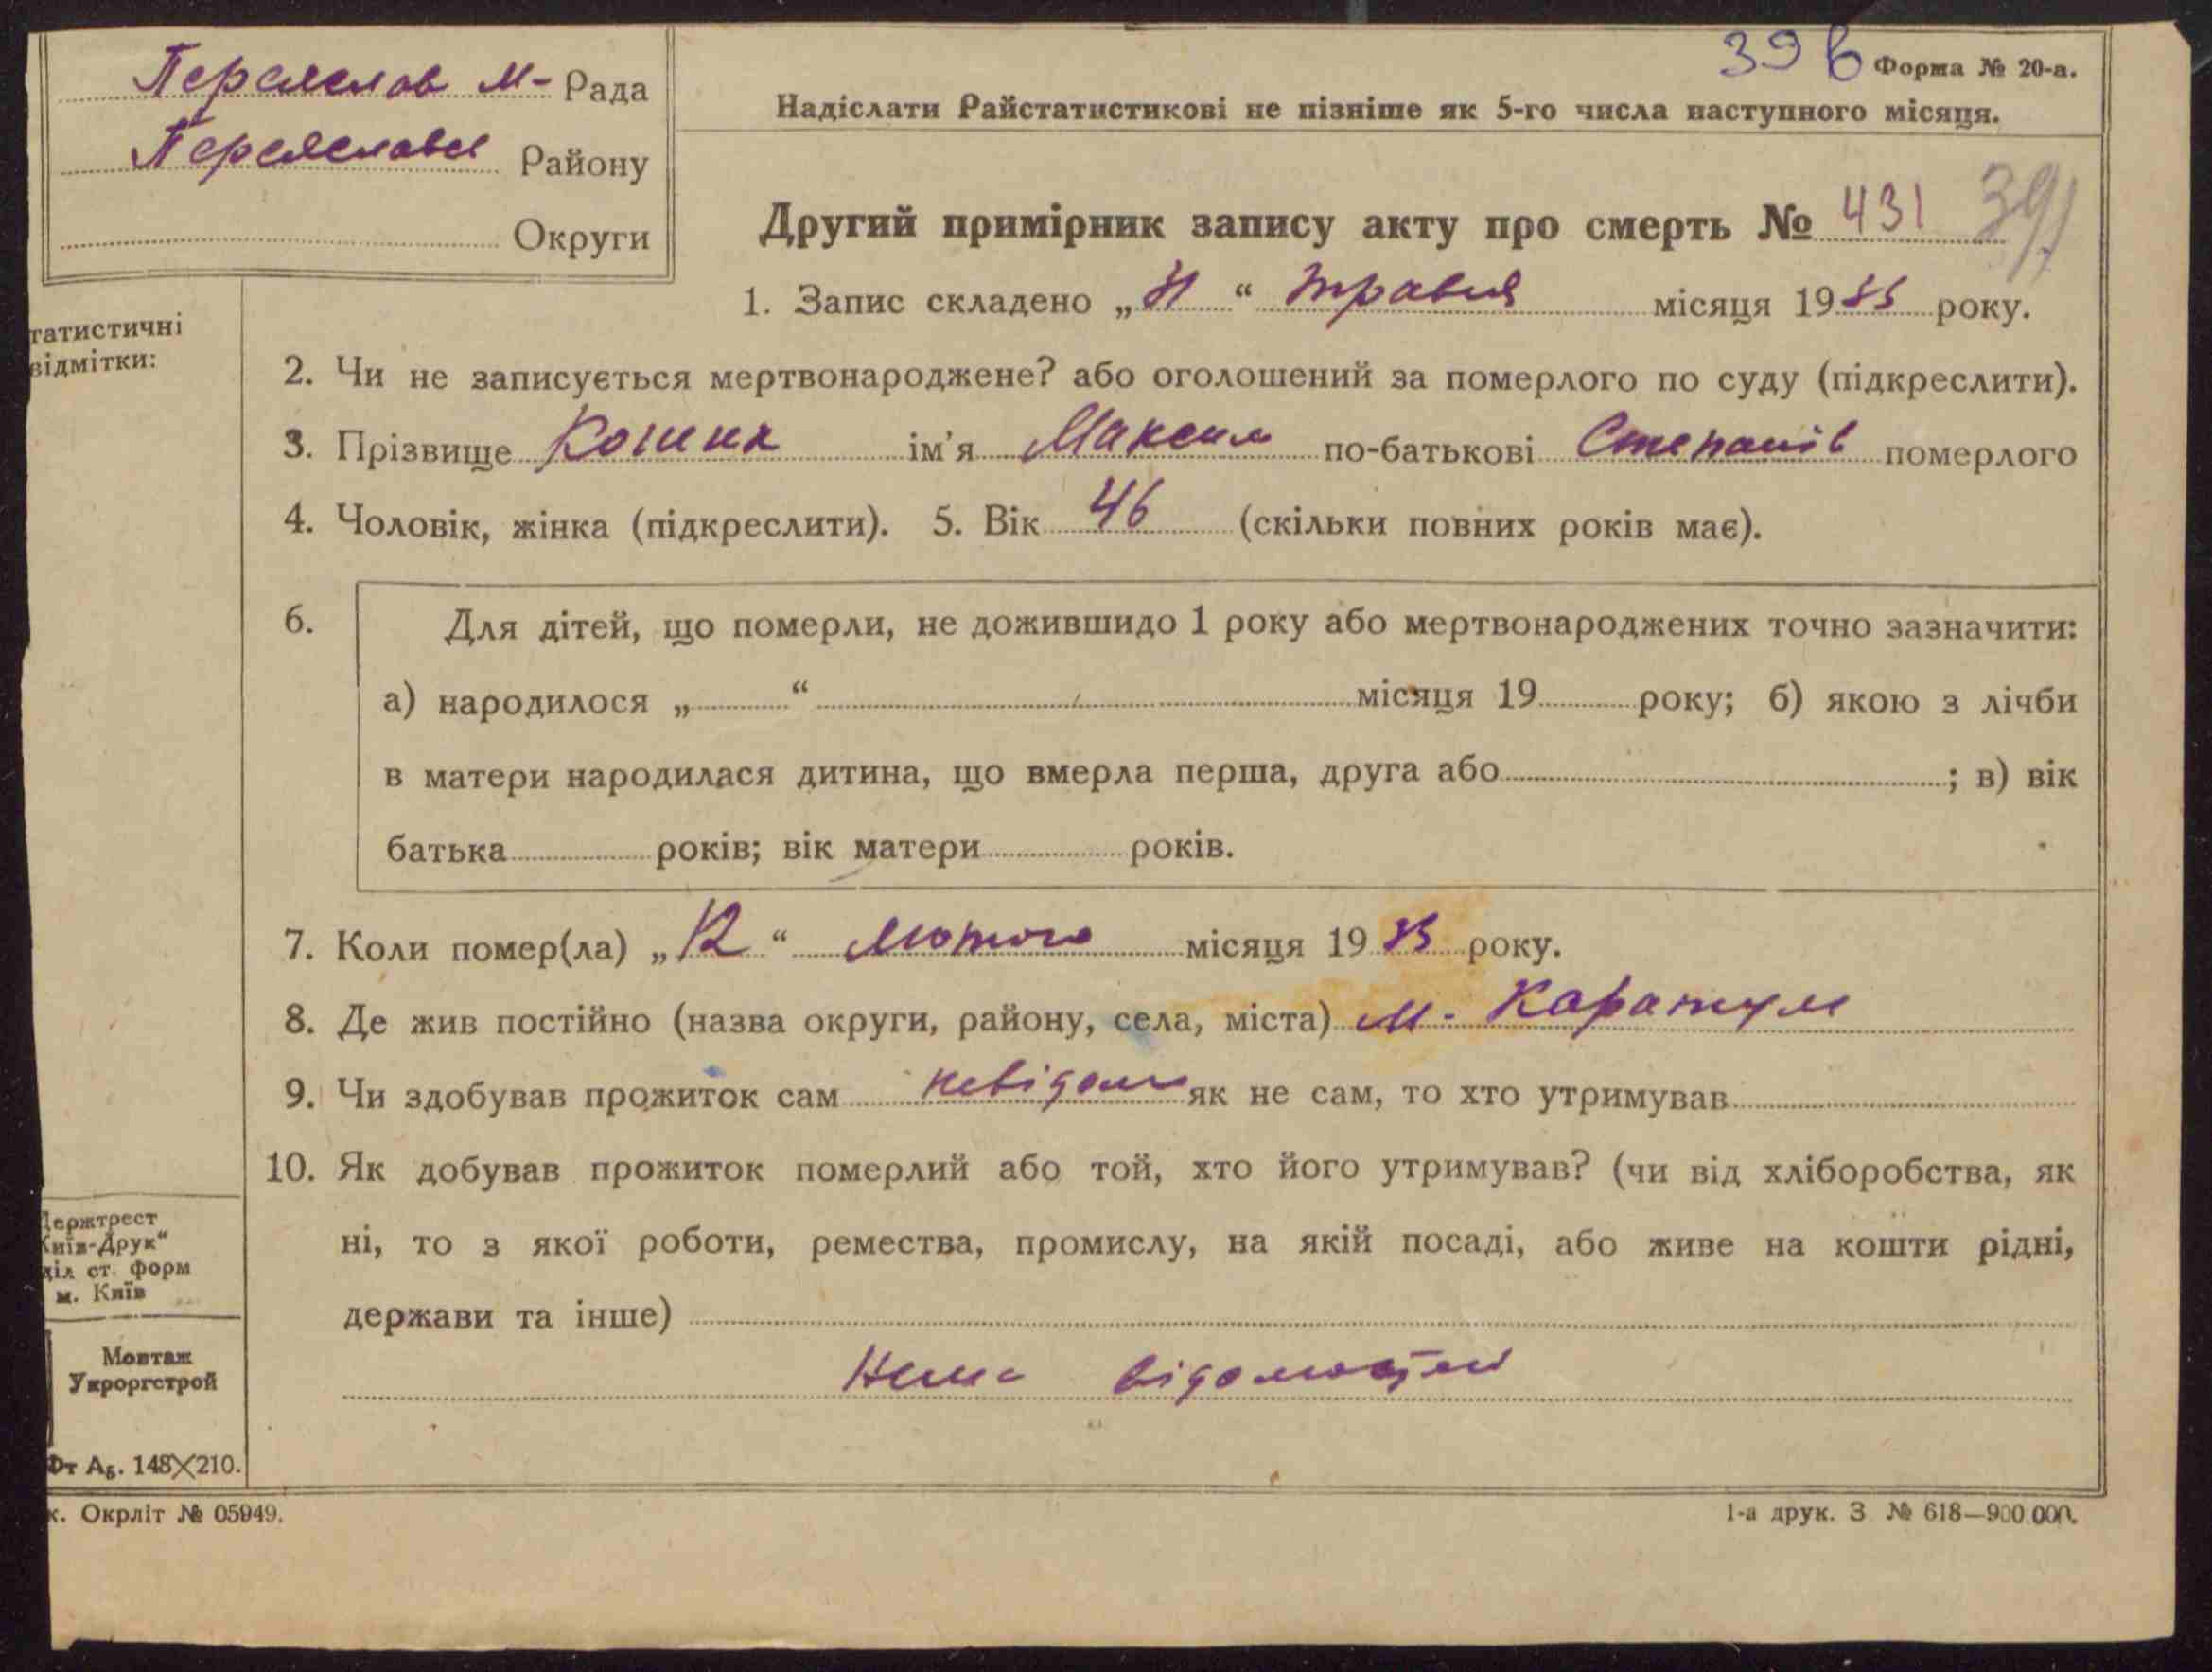 39 в Форма № 20-а.
Переяслов М- Рада
Надіслати Райстатистикові не пізніше як 5-го числа наступного місяця.
Району
Округи
Другий примірник запису акту про смерть № 431 39
1. Запис складено „ “ травня місяця 19 року.
татистичні
відмітки:
2. Чи не записується мертвонароджене? або оголошений за померлого по суду (підкреслити).
3. Прізвище ім'я Максим по-батькові Степанів померлого
4. Чоловік, жінка (підкреслити). 5. Вік 46 (скільки повних років має).
6. Для дітей, що померли, не дожившидо 1 року або мертвонароджених точно зазначити:
а) народилося „ “ місяця 19 року; б) якою з лічби
в матери народилася дитина, що вмерла перша, друга або ; в) вік
батька років; вік матери років.
7. Коли помер(ла) „12“ Лютого місяця 19 33 року.
8. Де жив постійно (назва округи, району, села, міста) м. Каратул
9. Чи здобував прожиток сам невідомо як не сам, то хто утримував
10. Як добував прожиток померлий або той, хто його утримував? (чи від хліборобства, як
ні, то з якої роботи, ремества, промислу, на якій посаді, або живе на кошти рідні,
держави та інше)
Нема відомостей
Держтрест
Київ-Друк“
діл ст. форм
м. Київ
Монтаж
Укроргстрой
Фт А₅. 148×210.
к. Окрліт № 05949.
1-а друк. З № 618—900.000.